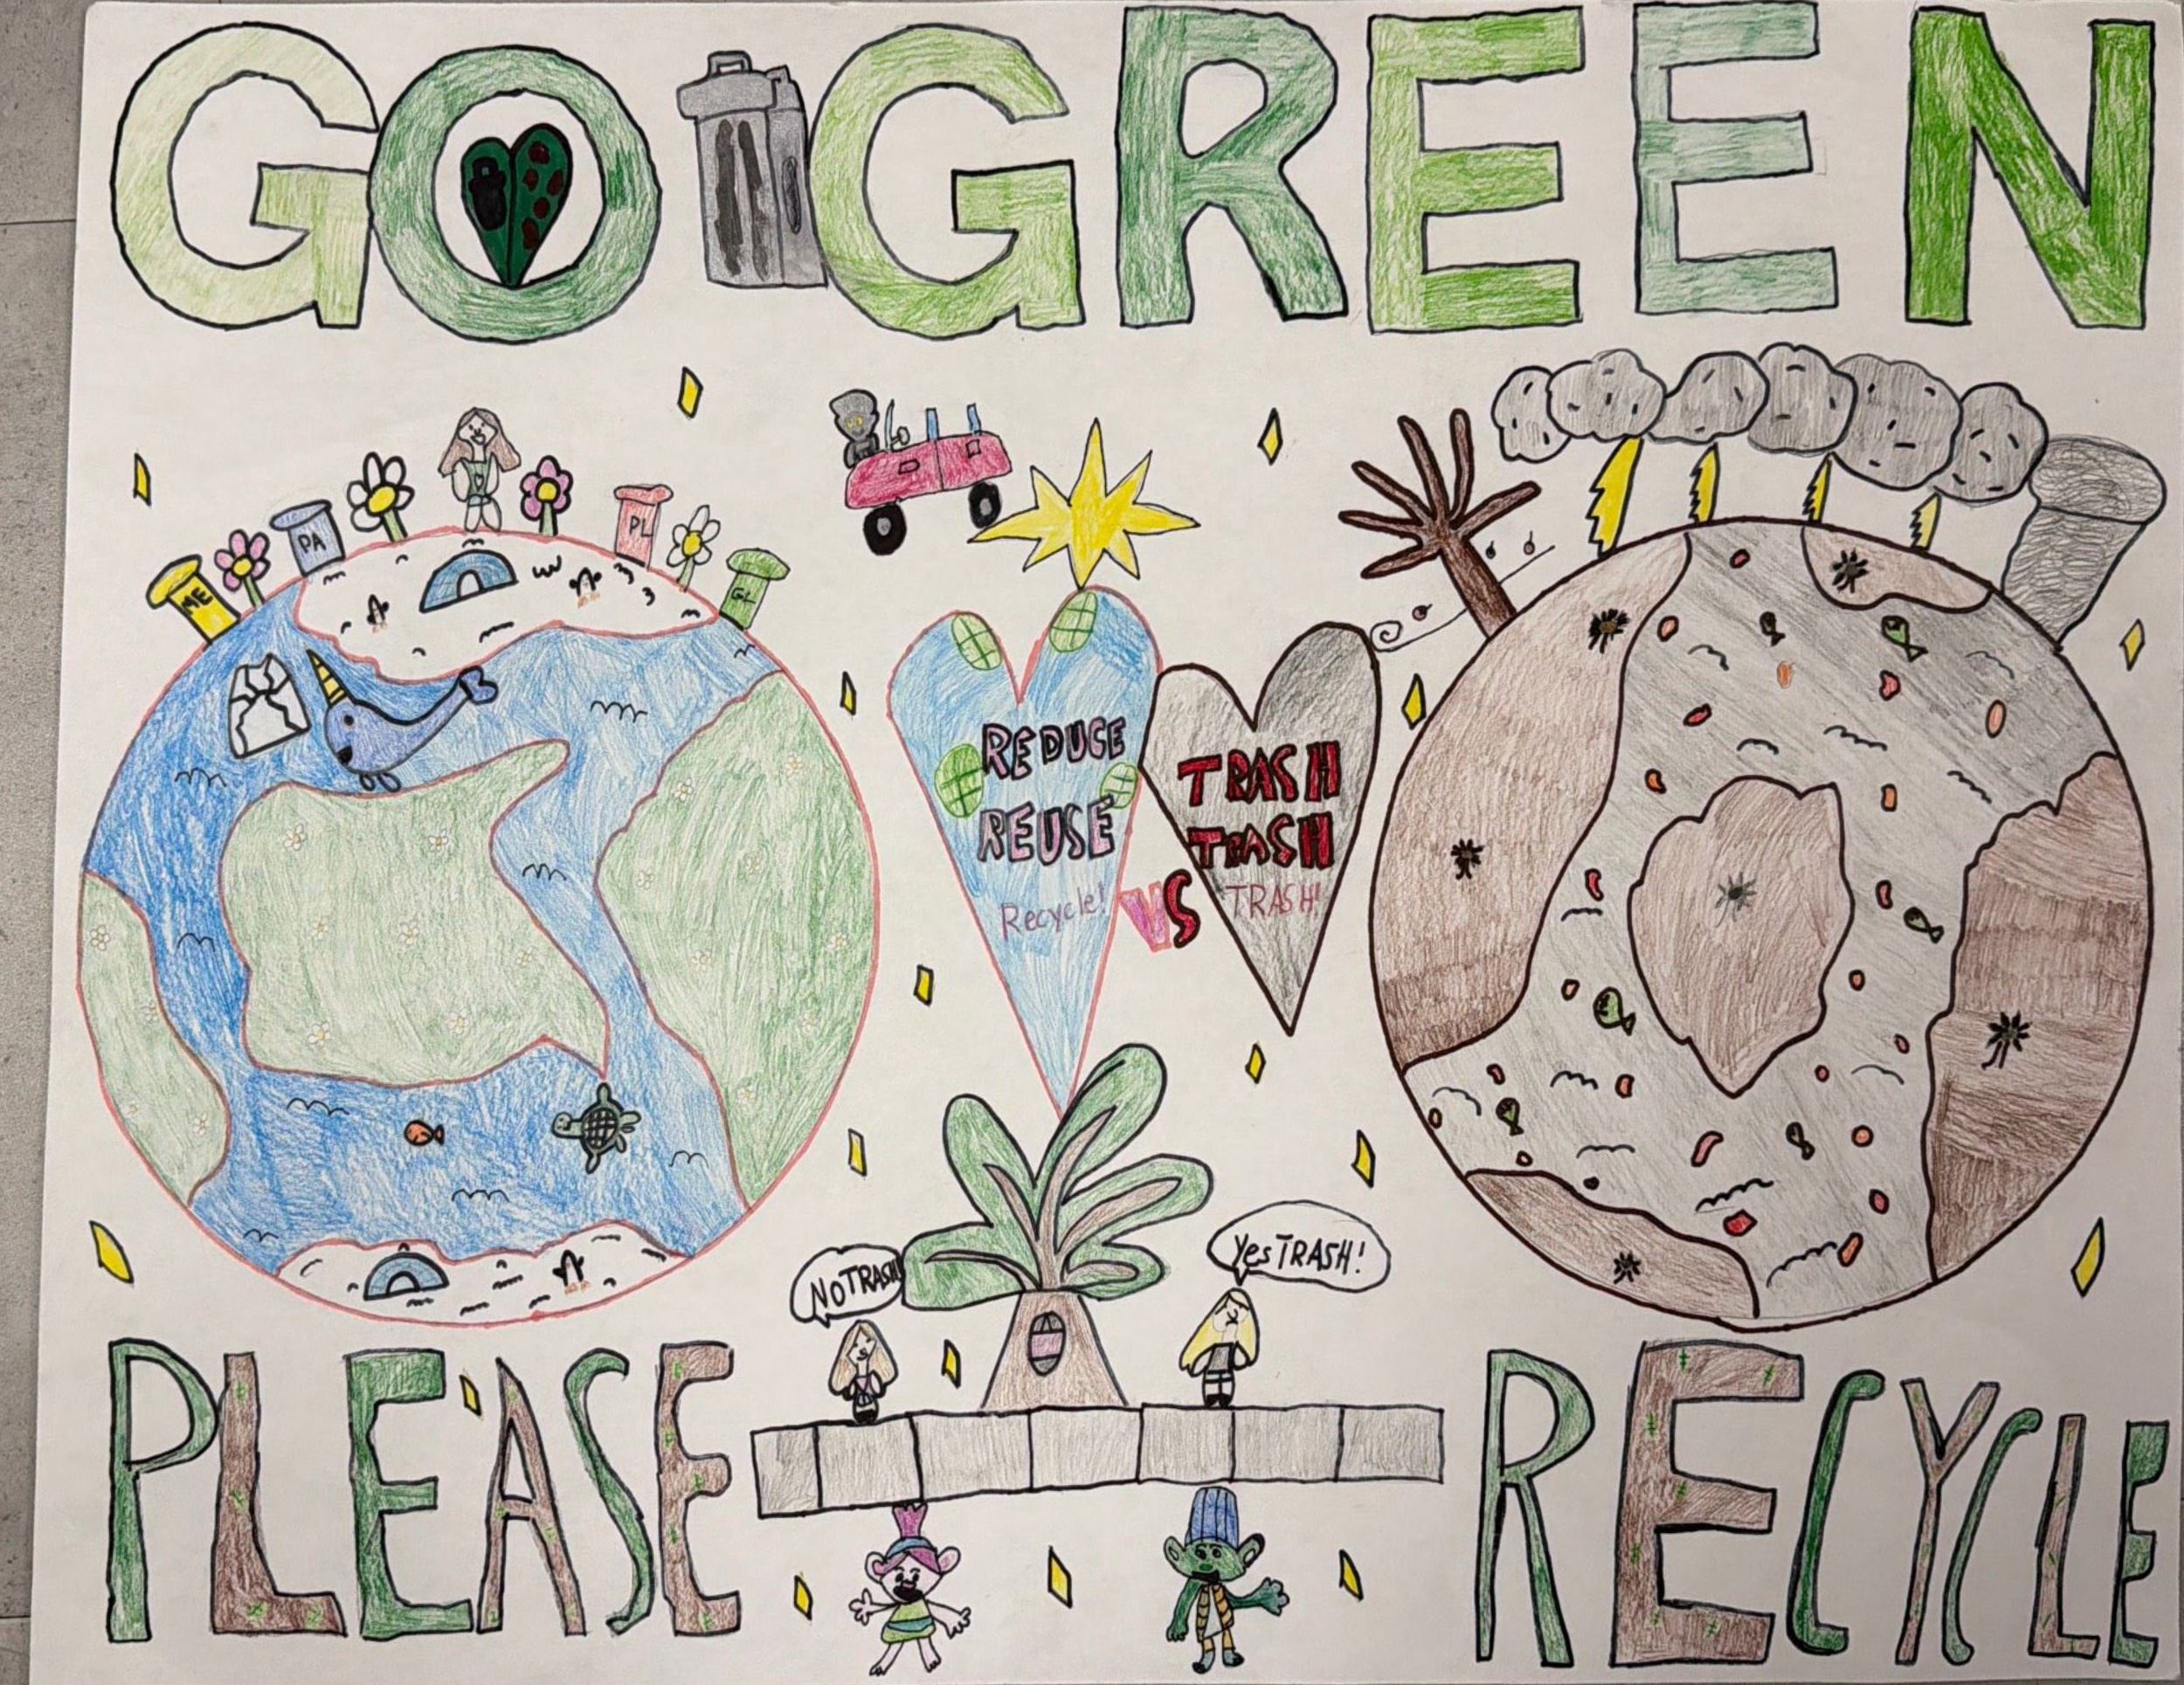 GO GREEN
ME
PA
PL
GL
REDUCE
REUSE
Recycle!
VS
TRASH
TRASH
TRASH!
NO TRASH!
Yes TRASH!
PLEASE RECYCLE